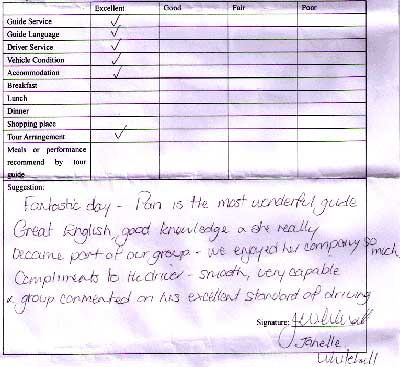 Excellent Good Fair Poor
Guide Service ✓
Guide Language ✓
Driver Service ✓
Vehicle Condition ✓
Accommodation ✓
Breakfast
Lunch
Dinner
Shopping place
Tour Arrangement ✓
Meals or performance
recommend by tour
guide
Suggestion:
Fantastic day - Pan is the most wonderful guide
Great English, good knowledge & she really
became part of our group - we enjoyed her company so much
Compliments to the driver - smooth, very capable
& group commented on his excellent standard of driving
Signature:
Janelle